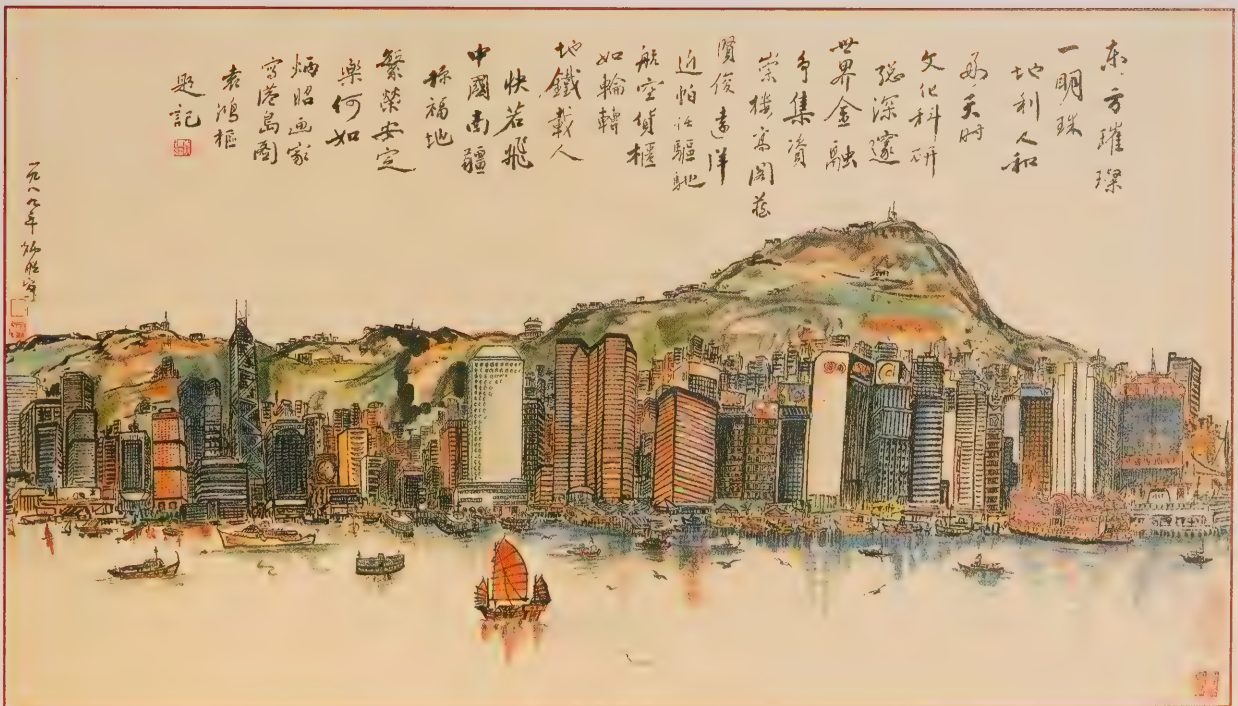 东方璀璨
一明珠
地利人和
天时
文化科研
深邃
世界金融
争集資
崇樓高阁
賢俊遠洋
近任驅馳
航空貨櫃
如輪轉
地鐵載人
快若飛
中國南疆
称福地
繁荣安定
樂何如
炳昭画家
寫港島图
袁鴻樞
題記
一九八九年炳昭寫